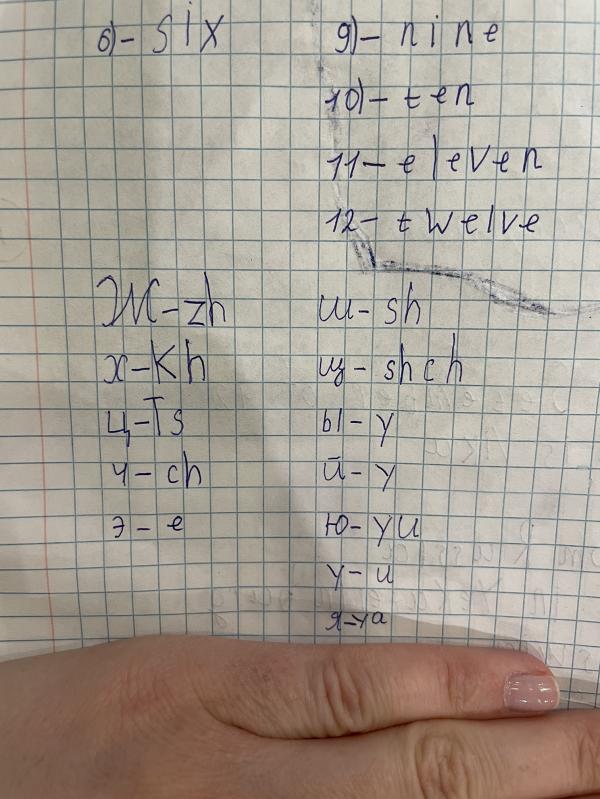 6)- six
9)- nine
10)- ten
11- eleven
12- twelve
Ж-zh
х-Kh
ц-Ts
ч-ch
э-e
ш-sh
щ-shch
ы-y
й-y
ю-yu
у-u
я-ya